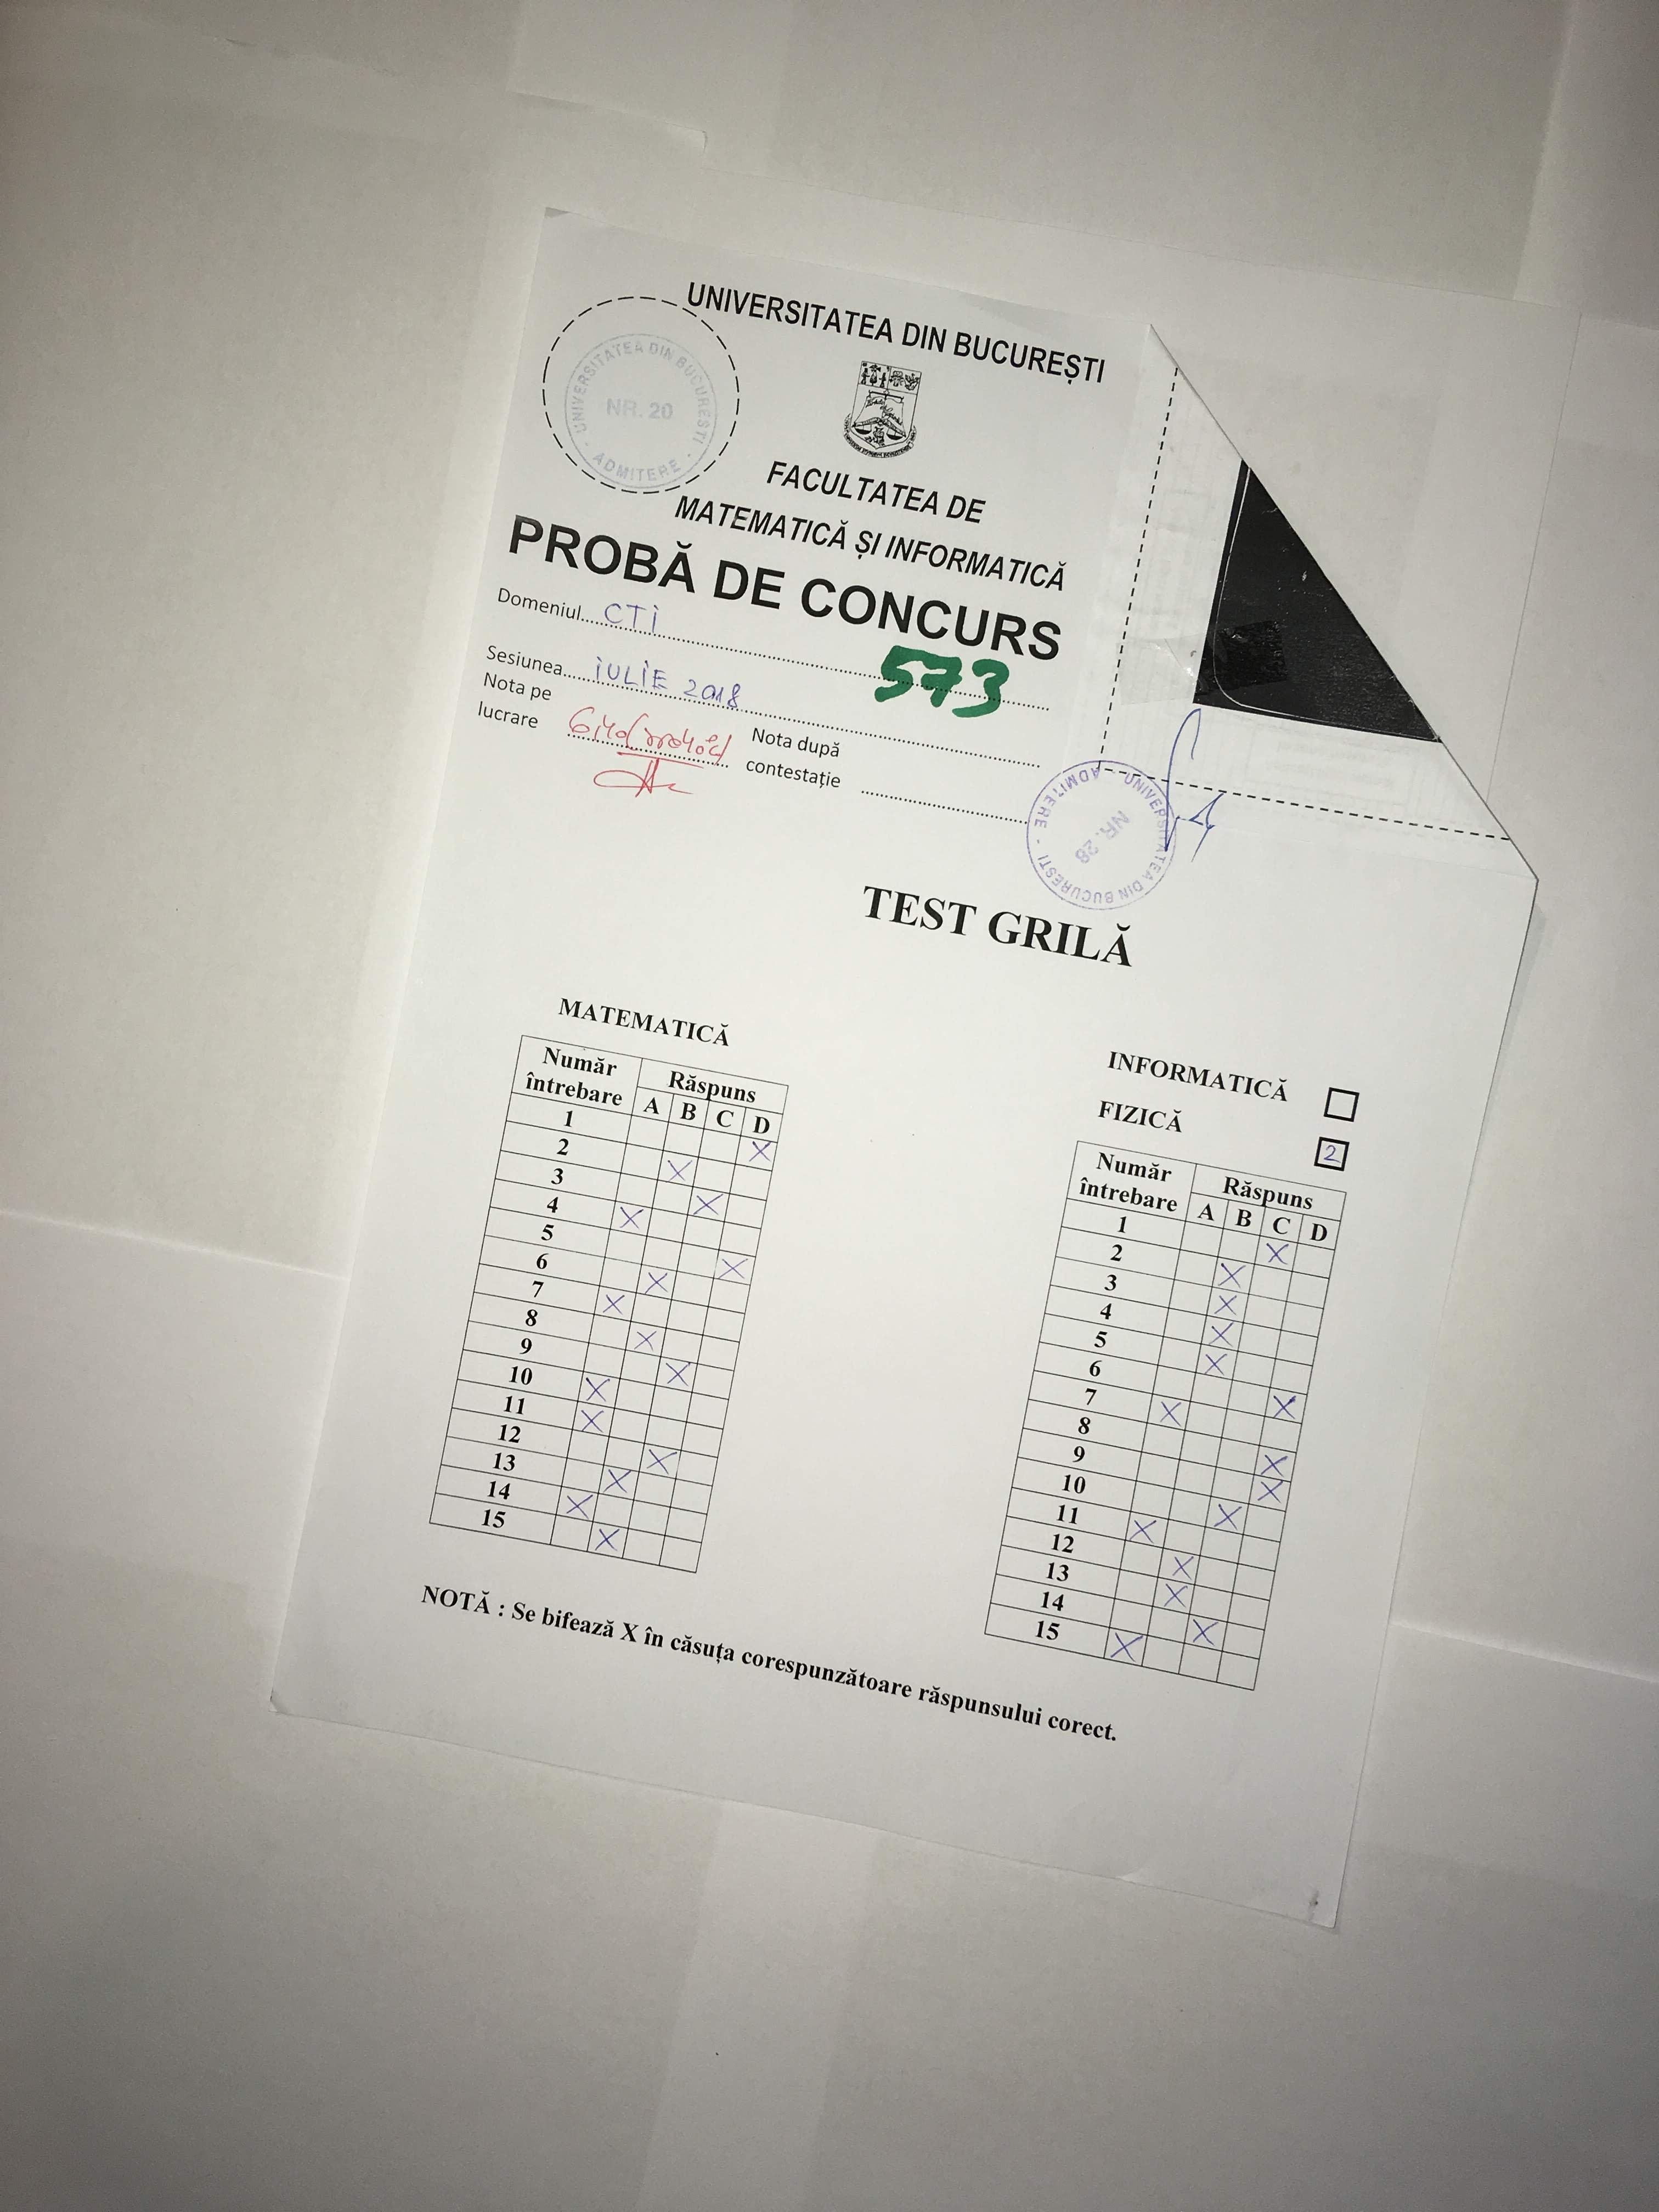 UNIVERSITATEA DIN BUCUREȘTI
UNIVERSITATEA DIN BUCUREȘTI
NR. 20
· ADMITERE ·
FACULTATEA DE
MATEMATICĂ ȘI INFORMATICĂ
PROBĂ DE CONCURS
Domeniul CTI
573
Sesiunea IULIE 2018
Nota pe
lucrare 6,40
Nota după
contestație
UNIVERSITATEA DIN BUCURESTI
NR. 28
· ADMITERE ·
TEST GRILĂ
MATEMATICĂ
Număr
întrebare
Răspuns
A B C D
1 X
2 X
3 X
4 X
5 X
6 X
7 X
8 X
9 X
10 X
11 X
12 X
13 X
14 X
15 X
INFORMATICĂ
FIZICĂ 2
Număr
întrebare
Răspuns
A B C D
1 X
2 X
3 X
4 X
5 X
6 X
7 X
8 X
9 X
10 X
11 X
12 X
13 X
14 X
15 X
NOTĂ : Se bifează X în căsuța corespunzătoare răspunsului corect.